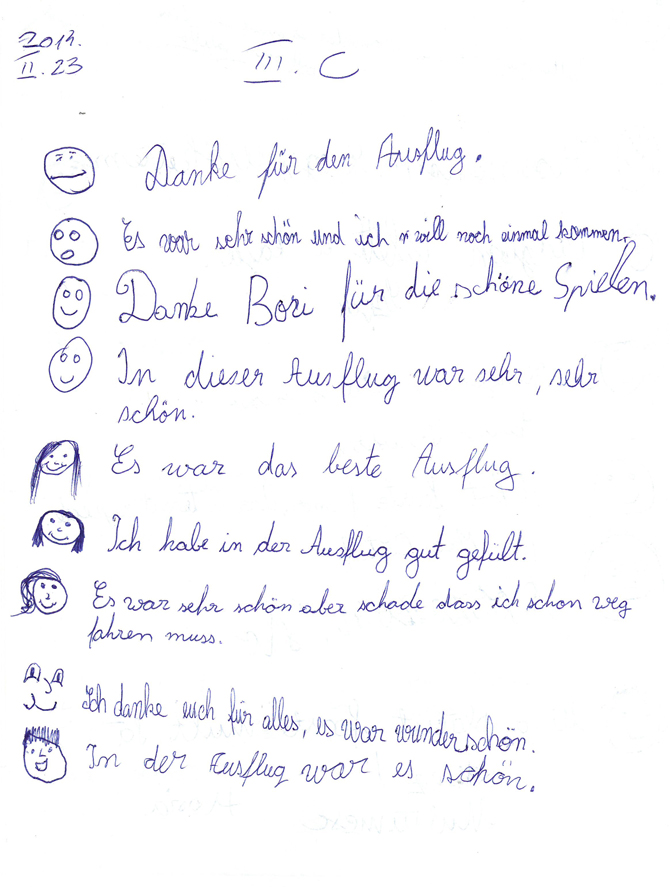 2013.
II. 23
III. C
Danke für den Ausflug.
Es war sehr schön und ich will noch einmal kommen.
Danke Bori für die schöne Spielen.
In dieser Ausflug war sehr, sehr
schön.
Es war das beste Ausflug.
Ich habe in der Ausflug gut gefült.
Es war sehr schön aber schade dass ich schon weg
fahren muss.
Ich danke euch für alles, es war wunderschön.
In der Ausflug war es schön.